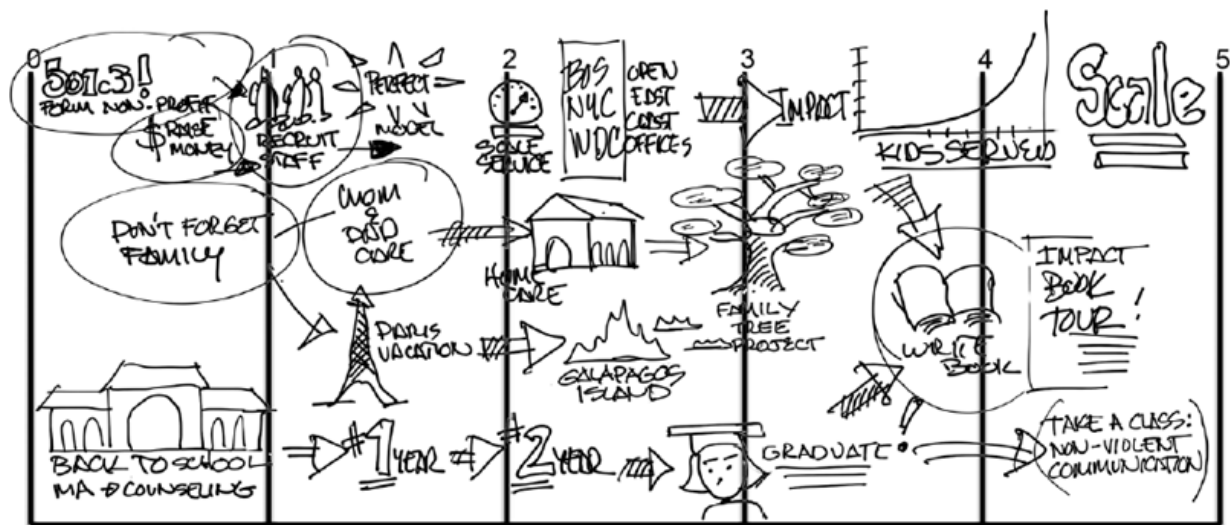 0
1
2
3
4
5
501c3!
FORM NON-PROFIT
$ RAISE
MONEY
RECRUIT
STAFF
PERFECT
MODEL
SCALE
SERVICE
BOS
NYC
WDC
OPEN
EAST
COAST
OFFICES
IMPACT
KIDS SERVED
Scale
DON'T FORGET
FAMILY
MOM
&
DAD
CARE
HOME
CARE
FAMILY
TREE
PROJECT
PARIS
VACATION
GALAPAGOS
ISLAND
WRITE
BOOK
IMPACT
BOOK
TOUR!
BACK TO SCHOOL
MA → COUNSELING
#1 YEAR
#2 YEAR
GRADUATE
TAKE A CLASS:
NON-VIOLENT
COMMUNICATION